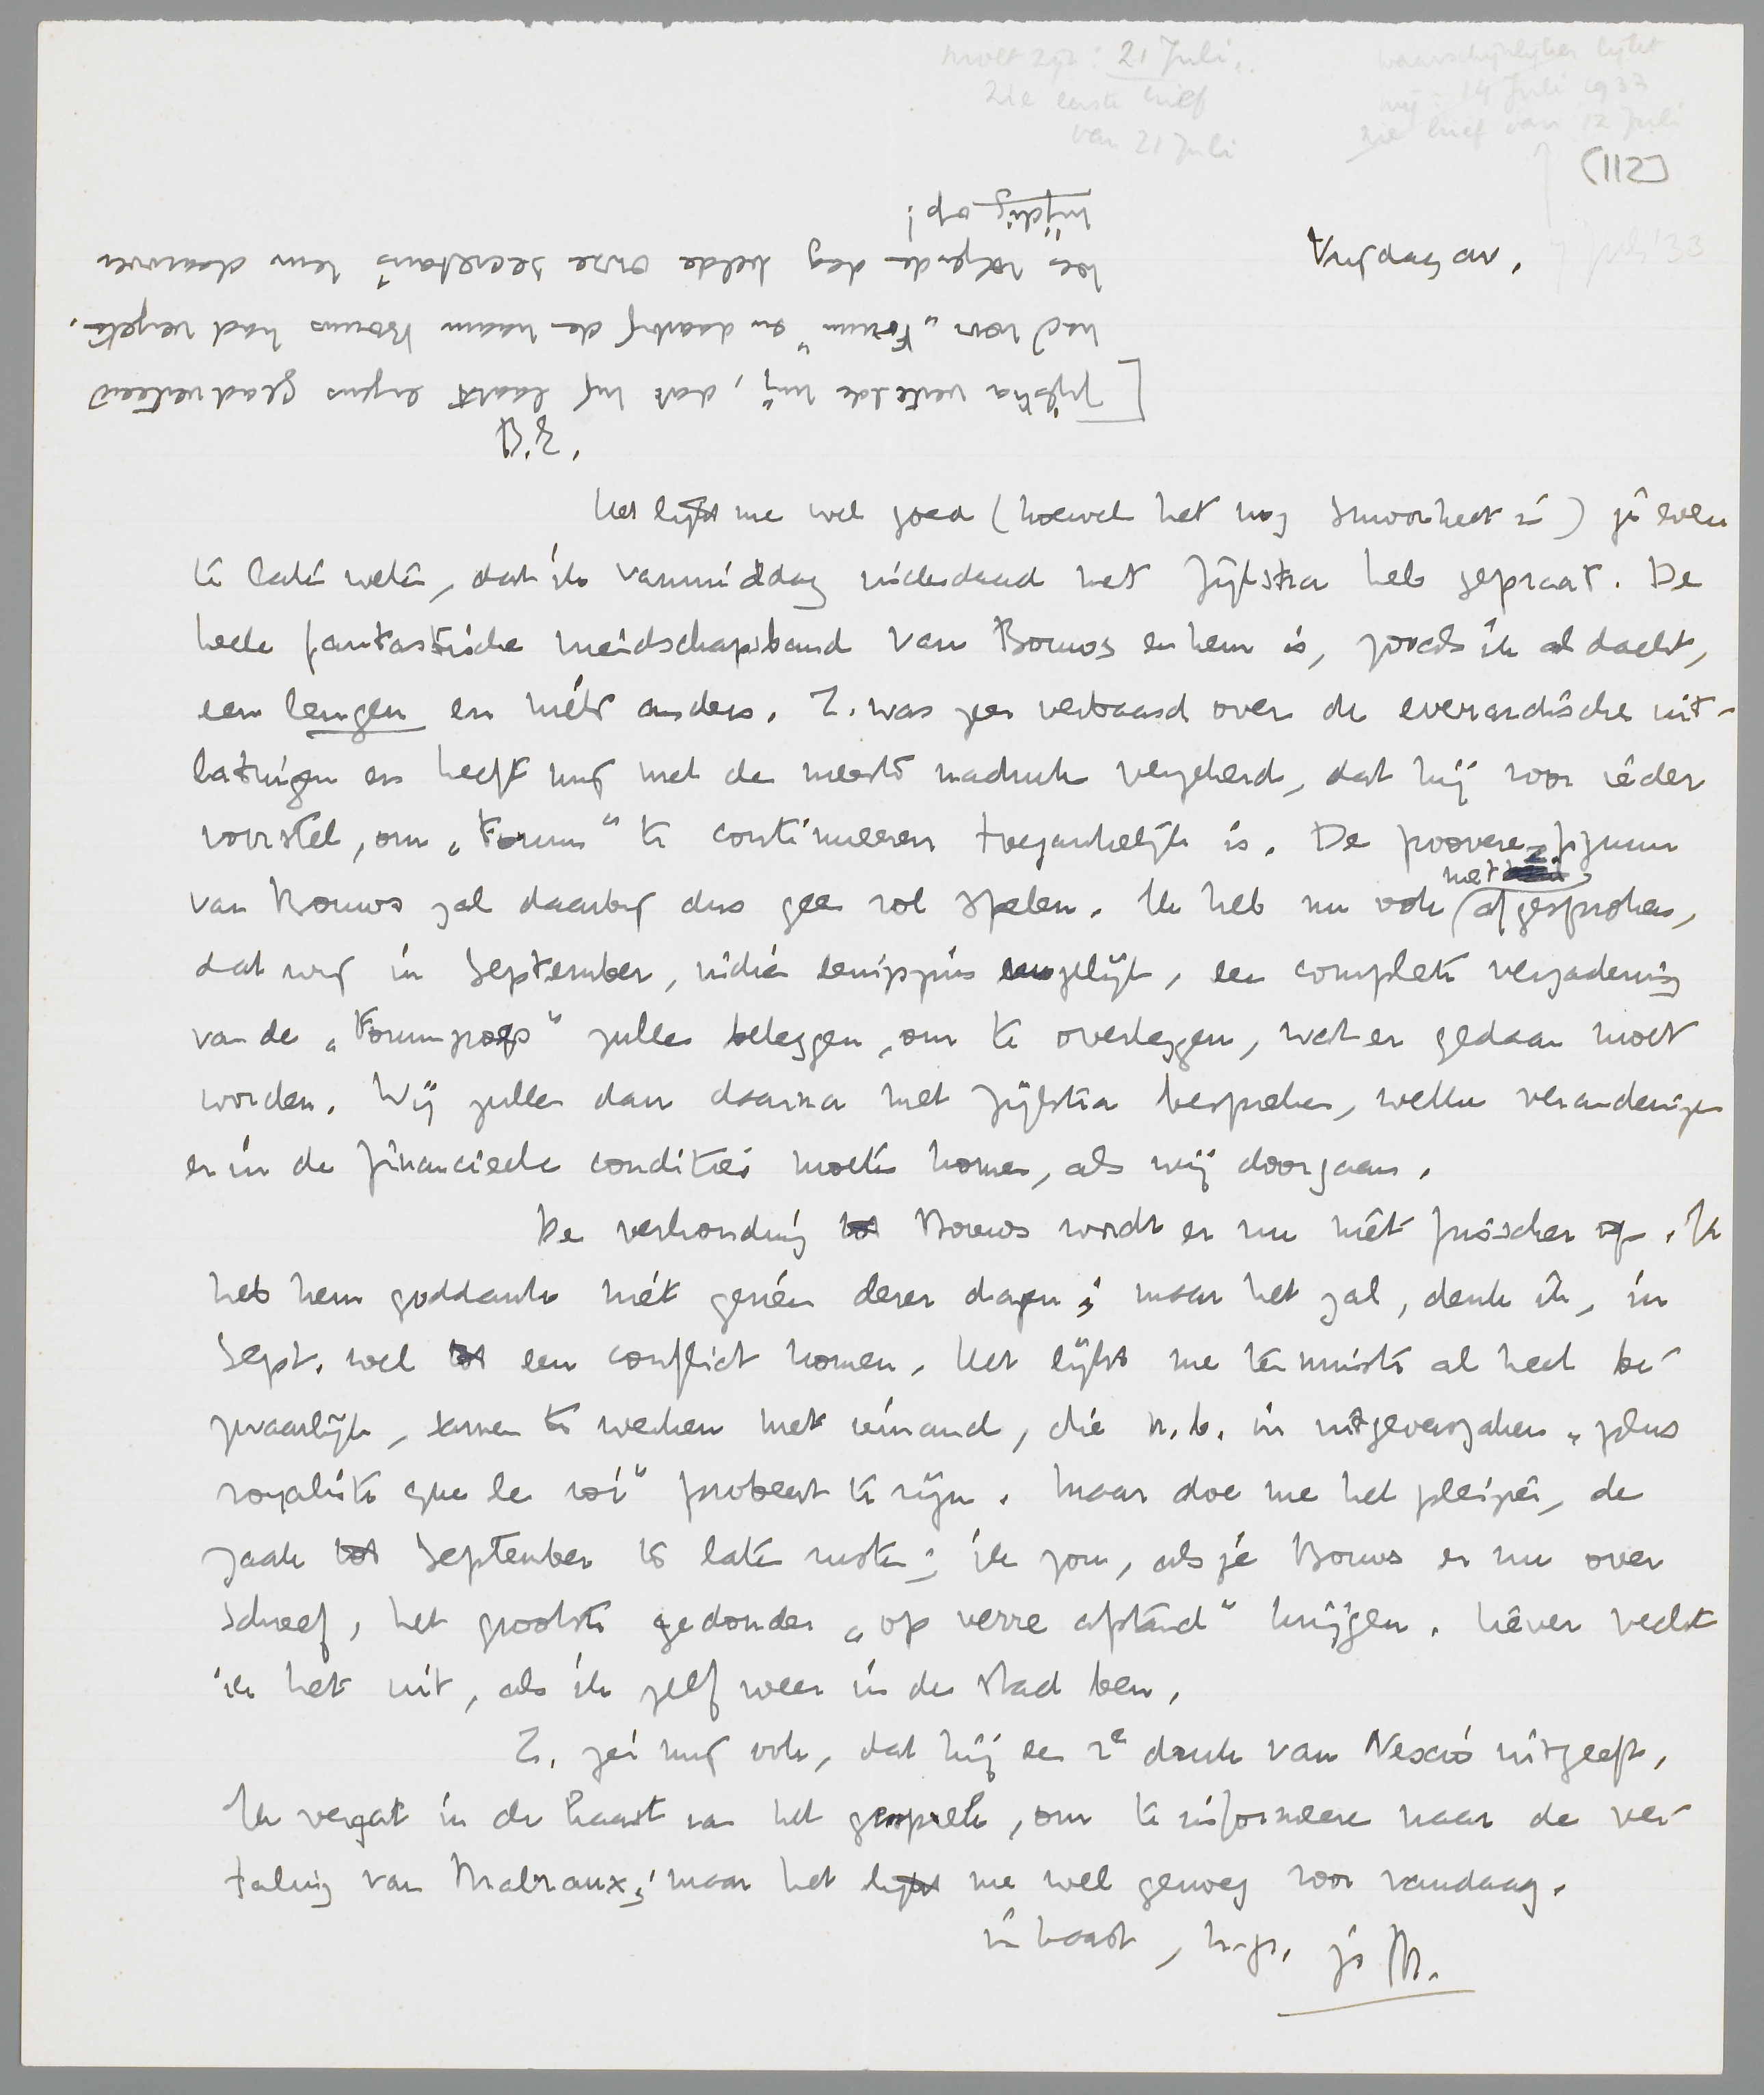 moet zijn: 21 Juli.
zie eerste brief
van 21 Juli
waarschijnlijker lijkt
mij: 14 Juli 1933
zie brief van 12 Juli
(112)
Vrijdag av.
7 Juli '33
B.E.
Het lijkt me wel goed (hoewel het nog smoorheet is) je even
te laten weten, dat ik vanmiddag inderdaad met Zijlstra heb gepraat. De
heele fantastische vriendschapsband van Bouws en hem is, zooals ik al dacht,
een leugen en niets anders. Z. was zeer verbaasd over de everardische uit-
latingen en heeft mij met de meeste nadruk verzekerd, dat hij voor ieder
voorstel, om „Forum" te continueeren toegankelijk is. De poovere figuur
van Bouws zal daarbij dus geen rol spelen. Ik heb nu ook met afgesproken,
dat wij in September, indien eenigszins mogelijk, een complete vergadering
van de „Forumgroep" zullen beleggen, om te overleggen, wat er gedaan moet
worden. Wij zullen dan daarna met Zijlstra bespreken, welke veranderingen
er in de financieele condities moeten komen, als wij doorgaan.
De verhouding tot Bouws wordt er nu niet frisscher op. Ik
heb hem goddank niet gezien dezer dagen; maar het zal, denk ik, in
Sept. wel tot een conflict komen. Het lijkt me tenminste al heel be-
zwaarlijk, samen te werken met iemand, die n.b. in uitgeverszaken „plus
royaliste que le roi" probeert te zijn. Maar doe me het pleizier, de
zaak tot September te laten rusten; ik zou, als je Bouws er nu over
schreef, het grootste gedonder „op verre afstand" krijgen. Liever vecht
ik het uit, als ik zelf weer in de stad ben.
Z. zei mij ook, dat hij een 2e druk van Nescio uitgeeft.
Ik vergat in de haast van het gesprek, om te informeeren naar de ver-
taling van Malraux; maar het lijkt me wel genoeg voor vandaag.
in haast, h.gr. je M.
[Zijlstra vertelde mij, dat hij laatst ergens geadverteerd
had voor „Forum" en daarbij de naam Bouws had vergeten.
Den volgenden dag belde onze secretaris hem daarover
nijdig op!